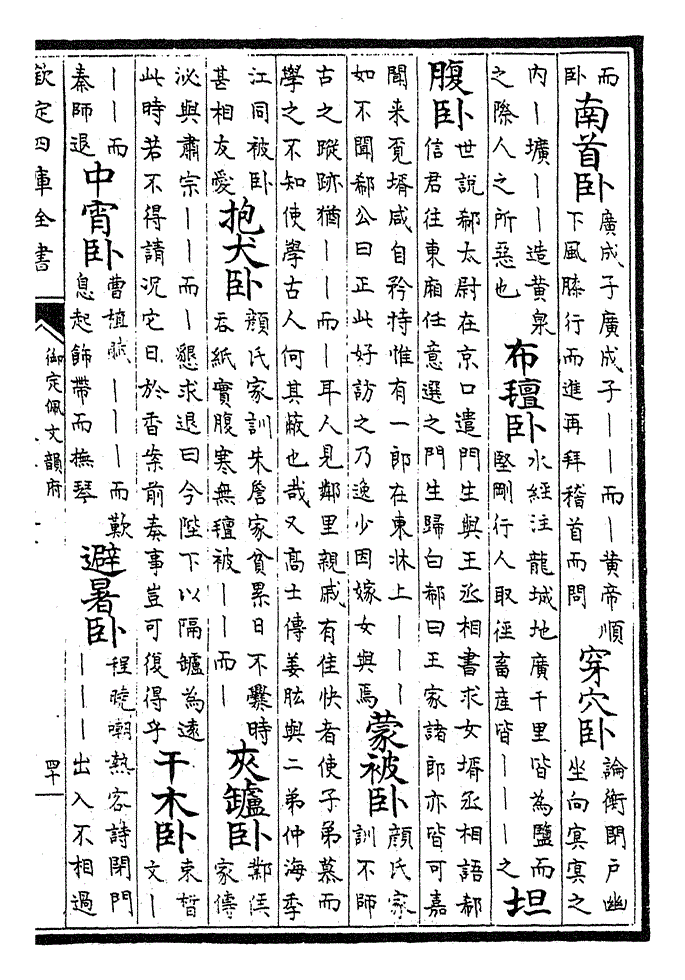 而
卧
南首卧
廣成子廣成子丨丨而丨黄帝順
下風膝行而進再拜稽首而問
穿穴卧
論衡閉戶幽
坐向㝠㝠之
内丨壙丨丨造黄泉
之際人之所惡也
布氊卧
水經注龍城地廣千里皆為鹽而
堅剛行人取徑畜産皆丨丨丨之
坦
腹卧
世説郗太尉在京口遣門生與王丞相書求女壻丞相語郗
信君往東廂任意選之門生歸白郗曰王家諸郎亦皆可嘉
聞来覓壻咸自矜持惟有一郎在東牀上丨丨丨
如不聞郗公曰正此好訪之乃逸少因嫁女與焉
蒙被卧
顔氏家
訓不師
古之蹤跡猶丨丨而丨耳人見鄰里親戚有佳快者使子弟慕而
學之不知使學古人何其蔽也哉又高士傳姜肱與二弟仲海季
江同被卧
甚相友愛
抱犬卧
顔氏家訓朱詹家貧累日不爨時
吞紙實腹寒無氊被丨丨而丨
夾罏卧
鄴侯
家傳
泌與肅宗丨丨而丨懇求退曰今陛下以隔罏為遠
此時若不得請況它日於香案前奏事豈可復得乎
干木卧
束晳
文丨
丨丨而
秦師退
中宵卧
曹植賦丨丨丨而歎
息起飾帶而撫琴
避暑卧
程曉嘲熱客詩閉門
丨丨丨出入不相過
欽定四庫全書
御定佩文韻府
四十